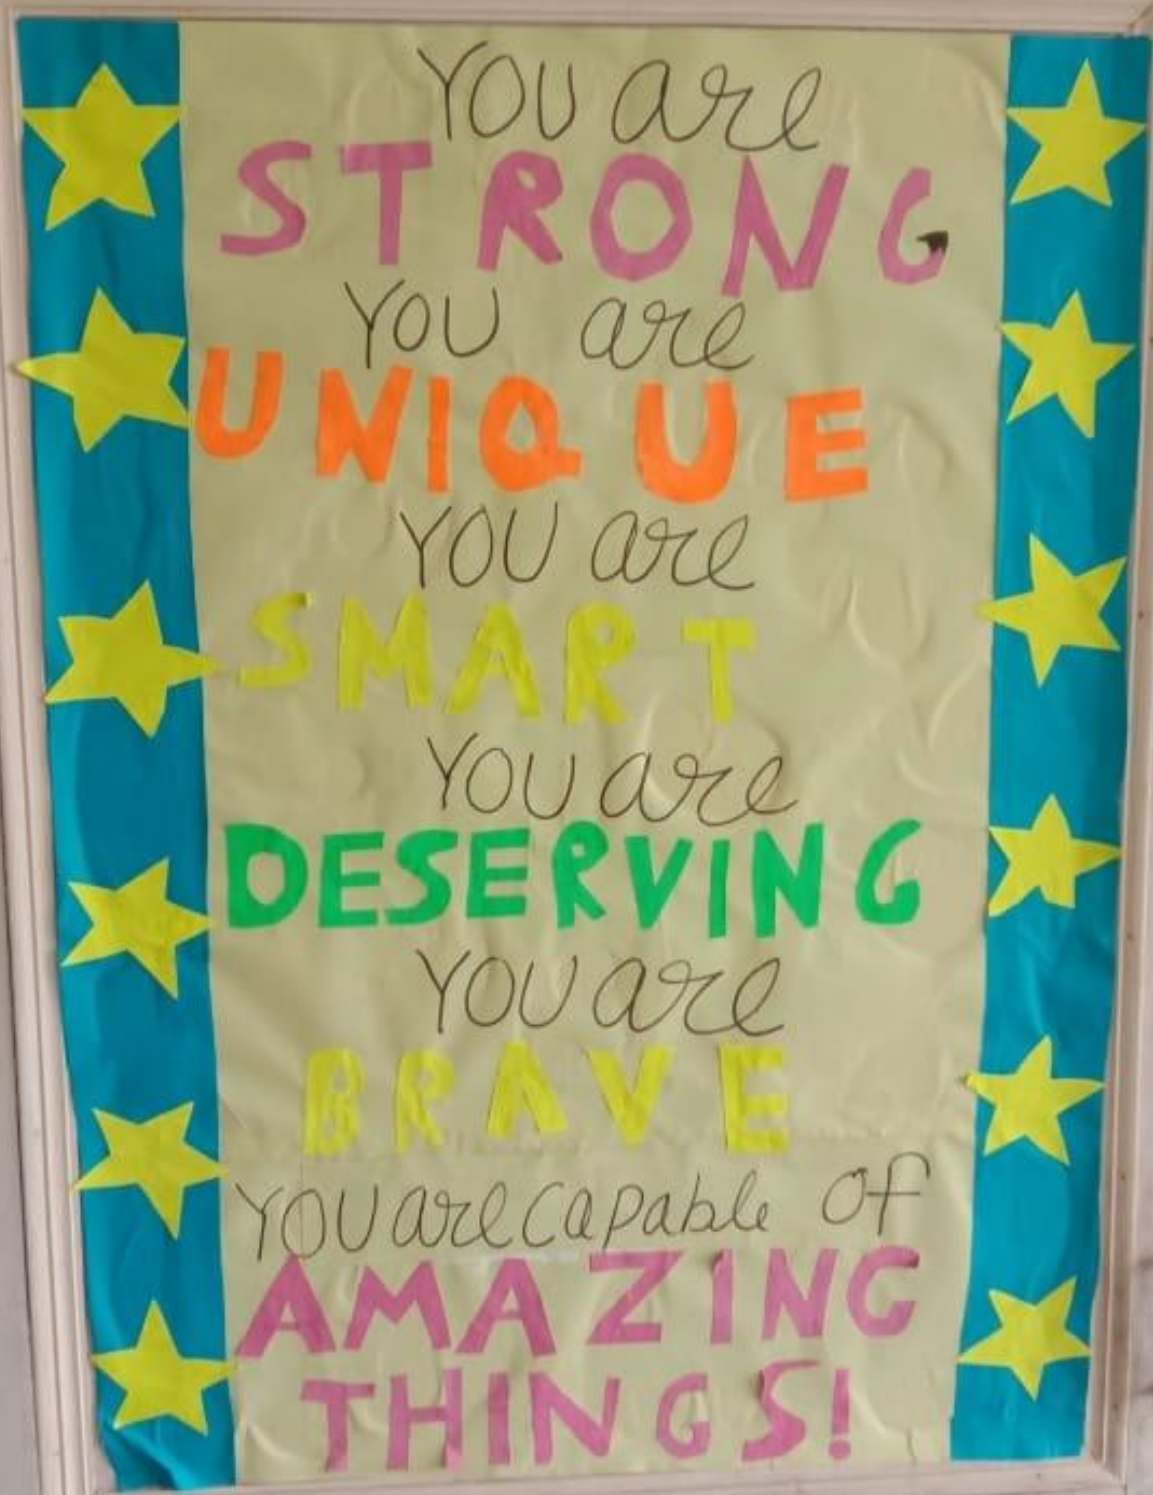 YOU are
STRONG
YOU are
UNIQUE
YOU are
SMART
YOU are
DESERVING
YOU are
BRAVE
YOU are capable of
AMAZING
THINGS!